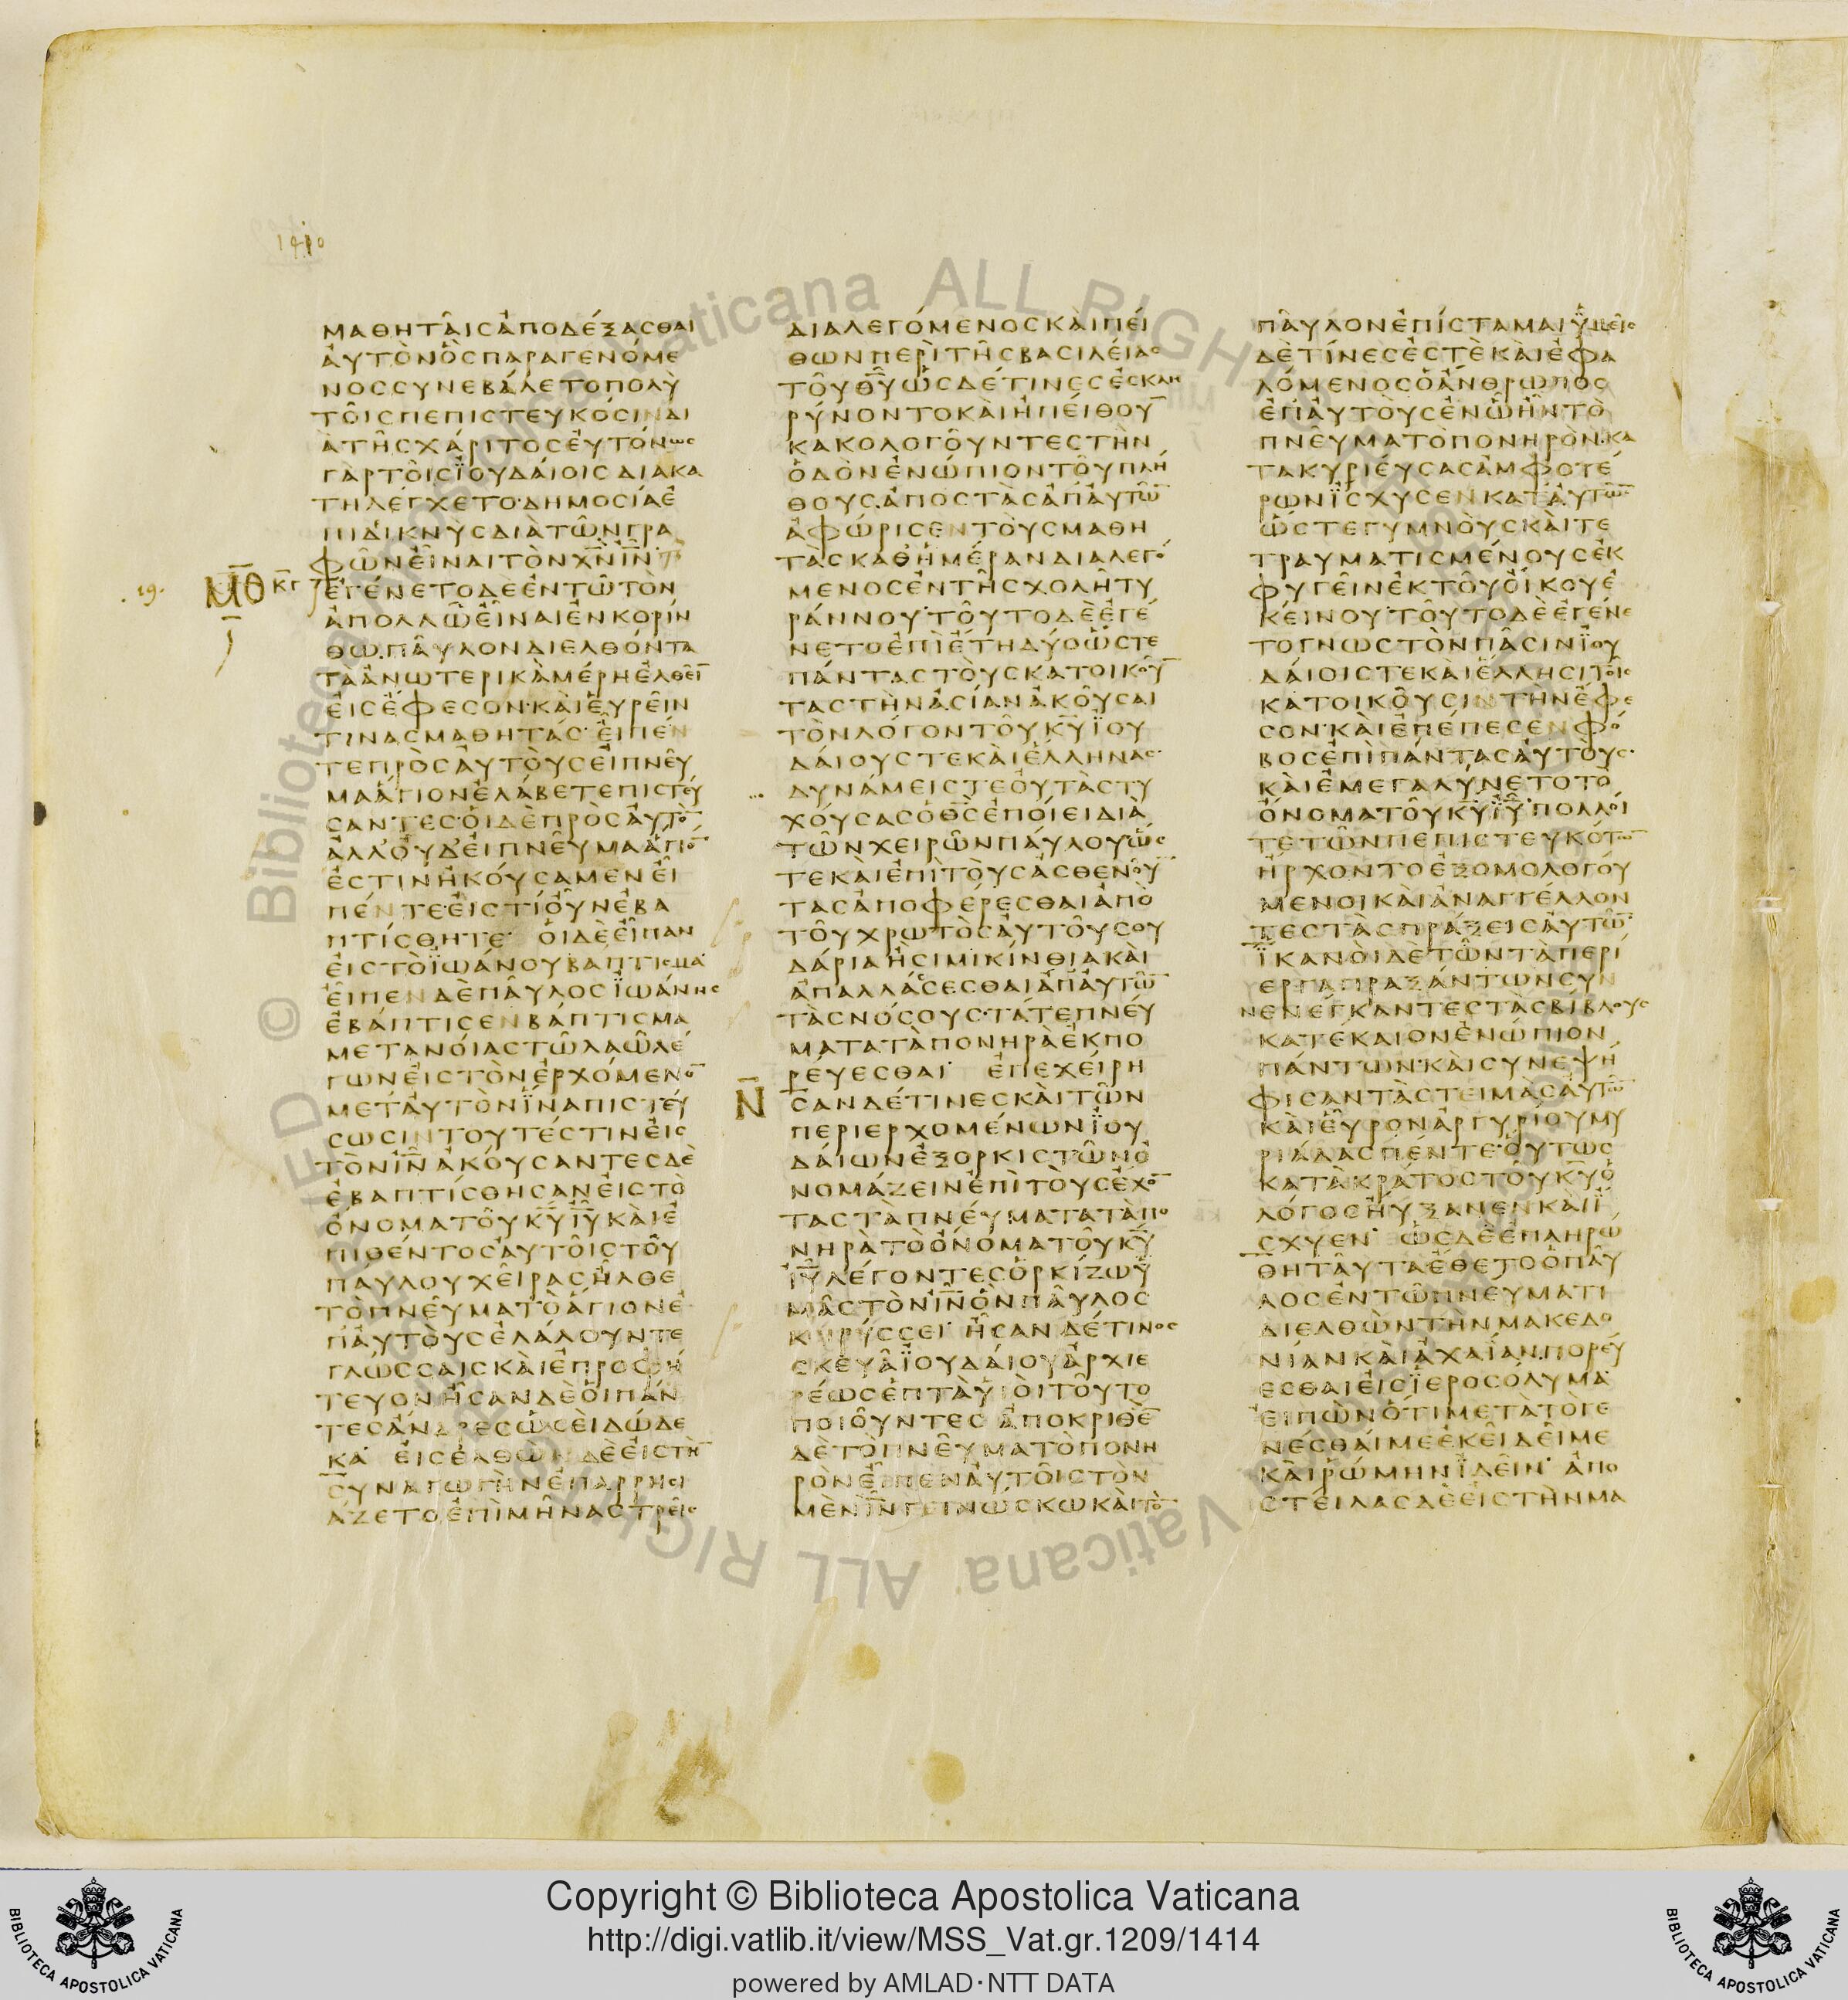 1410
ΜΑΘΗΤΑΙΣΑΠΟΔΕΞΑΣΘΑΙ
ΑΥΤΟΝΟΣΠΑΡΑΓΕΝΟΜΕ
ΝΟΣΣΥΝΕΒΑΛΕΤΟΠΟΛΥ
ΤΟΙΣΠΕΠΙΣΤΕΥΚΟΣΙΝΔΙ
ΑΤΗΣΧΑΡΙΤΟΣΕΥΤΟΝΩΣ
ΓΑΡΤΟΙΣΪΟΥΔΑΙΟΙΣΔΙΑΚΑ
ΤΗΛΕΓΧΕΤΟ·ΔΗΜΟΣΙΑΕ
ΠΙΔΙΚΝΥΣΔΙΑΤΩΝΓΡΑ
ΦΩΝΕΙΝΑΙΤΟΝΧ̅Ν̅Ι̅Ν̅
19 Μ̅Θ Κ̅Γ ΕΓΕΝΕΤΟΔΕΕΝΤΩΤΟΝ
ΑΠΟΛΛΩΕΙΝΑΙΕΝΚΟΡΙΝ
ΘΩΠΑΥΛΟΝΔΙΕΛΘΟΝΤΑ
ΤΑΑΝΩΤΕΡΙΚΑΜΕΡΗΕΛΘΕΙ̅
ΕΙΣΕΦΕΣΟΝ·ΚΑΙΕΥΡΕΙΝ
ΤΙΝΑΣΜΑΘΗΤΑΣ·ΕΙΠΕΝ
ΤΕΠΡΟΣΑΥΤΟΥΣΕΙΠΝΕΥ
ΜΑΑΓΙΟΝΕΛΑΒΕΤΕΠΙΣΤΕΥ
ΣΑΝΤΕΣ·ΟΙΔΕΠΡΟΣΑΥΤΟ̅
ΑΛΛΟΥΔΕΙΠΝΕΥΜΑΑΓΙΟ̅
ΕΣΤΙΝΗΚΟΥΣΑΜΕΝΕΙ
ΠΕΝΤΕ·ΕΙΣΤΙΟΥΝΕΒΑ
ΠΤΙΣΘΗΤΕ· ΟΙΔΕΕΙΠΑΝ
ΕΙΣΤΟΪΩΑΝΟΥΒΑΠΤΙΣΜΑ·
ΕΙΠΕΝΔΕΠΑΥΛΟΣΪΩΑΝΗΣ
ΕΒΑΠΤΙΣΕΝΒΑΠΤΙΣΜΑ
ΜΕΤΑΝΟΙΑΣΤΩΛΑΩΛΕ
ΓΩΝΕΙΣΤΟΝΕΡΧΟΜΕΝΟ̅
ΜΕΤΑΥΤΟΝΪΝΑΠΙΣΤΕΥ
ΣΩΣΙΝΤΟΥΤΕΣΤΙΝΕΙΣ
ΤΟΝΙ̅Ν̅ΑΚΟΥΣΑΝΤΕΣΔΕ
ΕΒΑΠΤΙΣΘΗΣΑΝΕΙΣΤΟ
ΟΝΟΜΑΤΟΥΚ̅Υ̅Ι̅Υ̅ΚΑΙΕ
ΠΙΘΕΝΤΟΣΑΥΤΟΙΣΤΟΥ
ΠΑΥΛΟΥΧΕΙΡΑΣΗΛΘΕ
ΤΟΠΝΕΥΜΑΤΟΑΓΙΟΝΕ
ΠΑΥΤΟΥΣΕΛΑΛΟΥΝΤΕ
ΓΛΩΣΣΑΙΣΚΑΙΕΠΡΟΦΗ
ΤΕΥΟΝΗΣΑΝΔΕΟΙΠΑΝ
ΤΕΣΑΝΔΡΕΣΩΣΕΙΔΩΔΕ
ΚΑ· ΕΙΣΕΛΘΩΝΔΕΕΙΣΤΗ̅
ΣΥΝΑΓΩΓΗΝΕΠΑΡΡΗΣΙ
ΑΖΕΤΟΕΠΙΜΗΝΑΣΤΡΕΙΣ
ΔΙΑΛΕΓΟΜΕΝΟΣΚΑΙΠΕΙ
ΘΩΝΠΕΡΙΤΗΣΒΑΣΙΛΕΙΑΣ
ΤΟΥΘ̅Υ̅ΩΣΔΕΤΙΝΕΣΕΣΚΛΗ
ΡΥΝΟΝΤΟΚΑΙΗΠΕΙΘΟΥ̅
ΚΑΚΟΛΟΓΟΥΝΤΕΣΤΗΝ
ΟΔΟΝΕΝΩΠΙΟΝΤΟΥΠΛΗ
ΘΟΥΣΑΠΟΣΤΑΣΑΠΑΥΤΩ̅
ΑΦΩΡΙΣΕΝΤΟΥΣΜΑΘΗ
ΤΑΣΚΑΘΗΜΕΡΑΝΔΙΑΛΕΓΟ
ΜΕΝΟΣΕΝΤΗΣΧΟΛΗΤΥ
ΡΑΝΝΟΥ·ΤΟΥΤΟΔΕΕΓΕ
ΝΕΤΟΕΠΙΕΤΗΔΥΟΩΣΤΕ
ΠΑΝΤΑΣΤΟΥΣΚΑΤΟΙΚΟΥ̅
ΤΑΣΤΗΝΑΣΙΑΝΑΚΟΥΣΑΙ
ΤΟΝΛΟΓΟΝΤΟΥΚ̅Υ̅ΪΟΥ
ΔΑΙΟΥΣΤΕΚΑΙΕΛΛΗΝΑΣ·
ΔΥΝΑΜΕΙΣΤΕΟΥΤΑΣΤΥ
ΧΟΥΣΑΣΟΘ̅Σ̅ΕΠΟΙΕΙΔΙΑ
ΤΩΝΧΕΙΡΩΝΠΑΥΛΟΥΩΣ
ΤΕΚΑΙΕΠΙΤΟΥΣΑΣΘΕΝΟΥ̅
ΤΑΣΑΠΟΦΕΡΕΣΘΑΙΑΠΟ
ΤΟΥΧΡΩΤΟΣΑΥΤΟΥΣΟΥ
ΔΑΡΙΑΗΣΙΜΙΚΙΝΘΙΑΚΑΙ
ΑΠΑΛΛΑΣΕΣΘΑΙΑΠΑΥΤΩ̅
ΤΑΣΝΟΣΟΥΣ·ΤΑΤΕΠΝΕΥ
ΜΑΤΑΤΑΠΟΝΗΡΑΕΚΠΟ
ΡΕΥΕΣΘΑΙ· ΕΠΕΧΕΙΡΗ
Ν̅ ΣΑΝΔΕΤΙΝΕΣΚΑΙΤΩΝ
ΠΕΡΙΕΡΧΟΜΕΝΩΝΪΟΥ
ΔΑΙΩΝΕΞΟΡΚΙΣΤΩΝΟ
ΝΟΜΑΖΕΙΝΕΠΙΤΟΥΣΕΧΟ̅
ΤΑΣΤΑΠΝΕΥΜΑΤΑΤΑΠΟ
ΝΗΡΑΤΟΟΝΟΜΑΤΟΥΚ̅Υ̅
Ι̅Υ̅ΛΕΓΟΝΤΕΣΟΡΚΙΖΩΫ
ΜΑΣΤΟΝΙ̅Ν̅ΟΝΠΑΥΛΟΣ
ΚΗΡΥΣΣΕΙ· ΗΣΑΝΔΕΤΙΝΟΣ
ΣΚΕΥΑΪΟΥΔΑΙΟΥΑΡΧΙΕ
ΡΕΩΣΕΠΤΑΫΙΟΙΤΟΥΤΟ
ΠΟΙΟΥΝΤΕΣ ΑΠΟΚΡΙΘΕ̅
ΔΕΤΟΠΝΕΥΜΑΤΟΠΟΝΗ
ΡΟΝΕΙΠΕΝΑΥΤΟΙΣΤΟΝ
ΜΕΝΙ̅Ν̅ΓΕΙΝΩΣΚΩΚΑΙΤΟ̅
ΠΑΥΛΟΝΕΠΙΣΤΑΜΑΙΫΜΕΙΣ
ΔΕΤΙΝΕΣΕΣΤΕΚΑΙΕΦΑ
ΛΟΜΕΝΟΣΟΑΝΘΡΩΠΟΣ
ΕΠΑΥΤΟΥΣΕΝΩΗΝΤΟ
ΠΝΕΥΜΑΤΟΠΟΝΗΡΟΝ·ΚΑ
ΤΑΚΥΡΙΕΥΣΑΣΑΜΦΟΤΕ
ΡΩΝΪΣΧΥΣΕΝΚΑΤΑΥΤΩ̅
ΩΣΤΕΓΥΜΝΟΥΣΚΑΙΤΕ
ΤΡΑΥΜΑΤΙΣΜΕΝΟΥΣΕΚ
ΦΥΓΕΙΝΕΚΤΟΥΟΙΚΟΥΕ
ΚΕΙΝΟΥ·ΤΟΥΤΟΔΕΕΓΕΝΕ
ΤΟΓΝΩΣΤΟΝΠΑΣΙΝΪΟΥ
ΔΑΙΟΙΣΤΕΚΑΙΕΛΛΗΣΙΤΟΙΣ
ΚΑΤΟΙΚΟΥΣΙΝΤΗΝΕΦΕ
ΣΟΝ·ΚΑΙΕΠΕΠΕΣΕΝΦΟ
ΒΟΣΕΠΙΠΑΝΤΑΣΑΥΤΟΥΣ·
ΚΑΙΕΜΕΓΑΛΥΝΕΤΟΤΟ
ΟΝΟΜΑΤΟΥΚ̅Υ̅Ι̅Υ̅·ΠΟΛΛΟΙ
ΤΕΤΩΝΠΕΠΙΣΤΕΥΚΟΤΩ̅
ΗΡΧΟΝΤΟΕΞΟΜΟΛΟΓΟΥ
ΜΕΝΟΙΚΑΙΑΝΑΓΓΕΛΛΟΝ
ΤΕΣΤΑΣΠΡΑΞΕΙΣΑΥΤΩ̅·
ΪΚΑΝΟΙΔΕΤΩΝΤΑΠΕΡΙ
ΕΡΓΑΠΡΑΞΑΝΤΩΝΣΥΝ
ΝΕΝΕΓΚΑΝΤΕΣΤΑΣΒΙΒΛΟΥΣ
ΚΑΤΕΚΑΙΟΝΕΝΩΠΙΟΝ
ΠΑΝΤΩΝ·ΚΑΙΣΥΝΕΨΗ
ΦΙΣΑΝΤΑΣΤΕΙΜΑΣΑΥΤΩ̅
ΚΑΙΕΥΡΟΝΑΡΓΥΡΙΟΥΜΥ
ΡΙΑΔΑΣΠΕΝΤΕ·ΟΥΤΩΣ
ΚΑΤΑΚΡΑΤΟΣΤΟΥΚ̅Υ̅Ο
ΛΟΓΟΣΗΥΞΑΝΕΝΚΑΙΪ
ΣΧΥΕΝ· ΩΣΔΕΕΠΛΗΡΩ
ΘΗΤΑΥΤΑΕΘΕΤΟΟΠΑΥ
ΛΟΣΕΝΤΩΠΝΕΥΜΑΤΙ
ΔΙΕΛΘΩΝΤΗΝΜΑΚΕΔΟ
ΝΙΑΝΚΑΙΑΧΑΪΑΝΠΟΡΕΥ
ΕΣΘΑΙΕΙΣΪΕΡΟΣΟΛΥΜΑ·
ΕΙΠΩΝΟΤΙΜΕΤΑΤΟΓΕ
ΝΕΣΘΑΙΜΕΕΚΕΙΔΕΙΜΕ
ΚΑΙΡΩΜΗΝΪΔΕΙΝ· ΑΠΟ
ΣΤΕΙΛΑΣΔΕΕΙΣΤΗΝΜΑ
© Biblioteca Apostolica Vaticana ALL RIGHTS RESERVED
Copyright © Biblioteca Apostolica Vaticana
http://digi.vatlib.it/view/MSS_Vat.gr.1209/1414
powered by AMLAD·NTT DATA
BIBLIOTECA APOSTOLICA VATICANA
BIBLIOTECA APOSTOLICA VATICANA